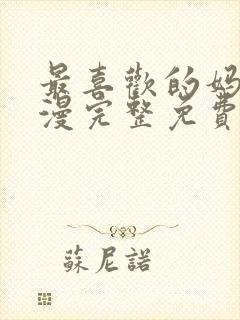 最喜歡的妈
漫完整免費
蘇尼諾